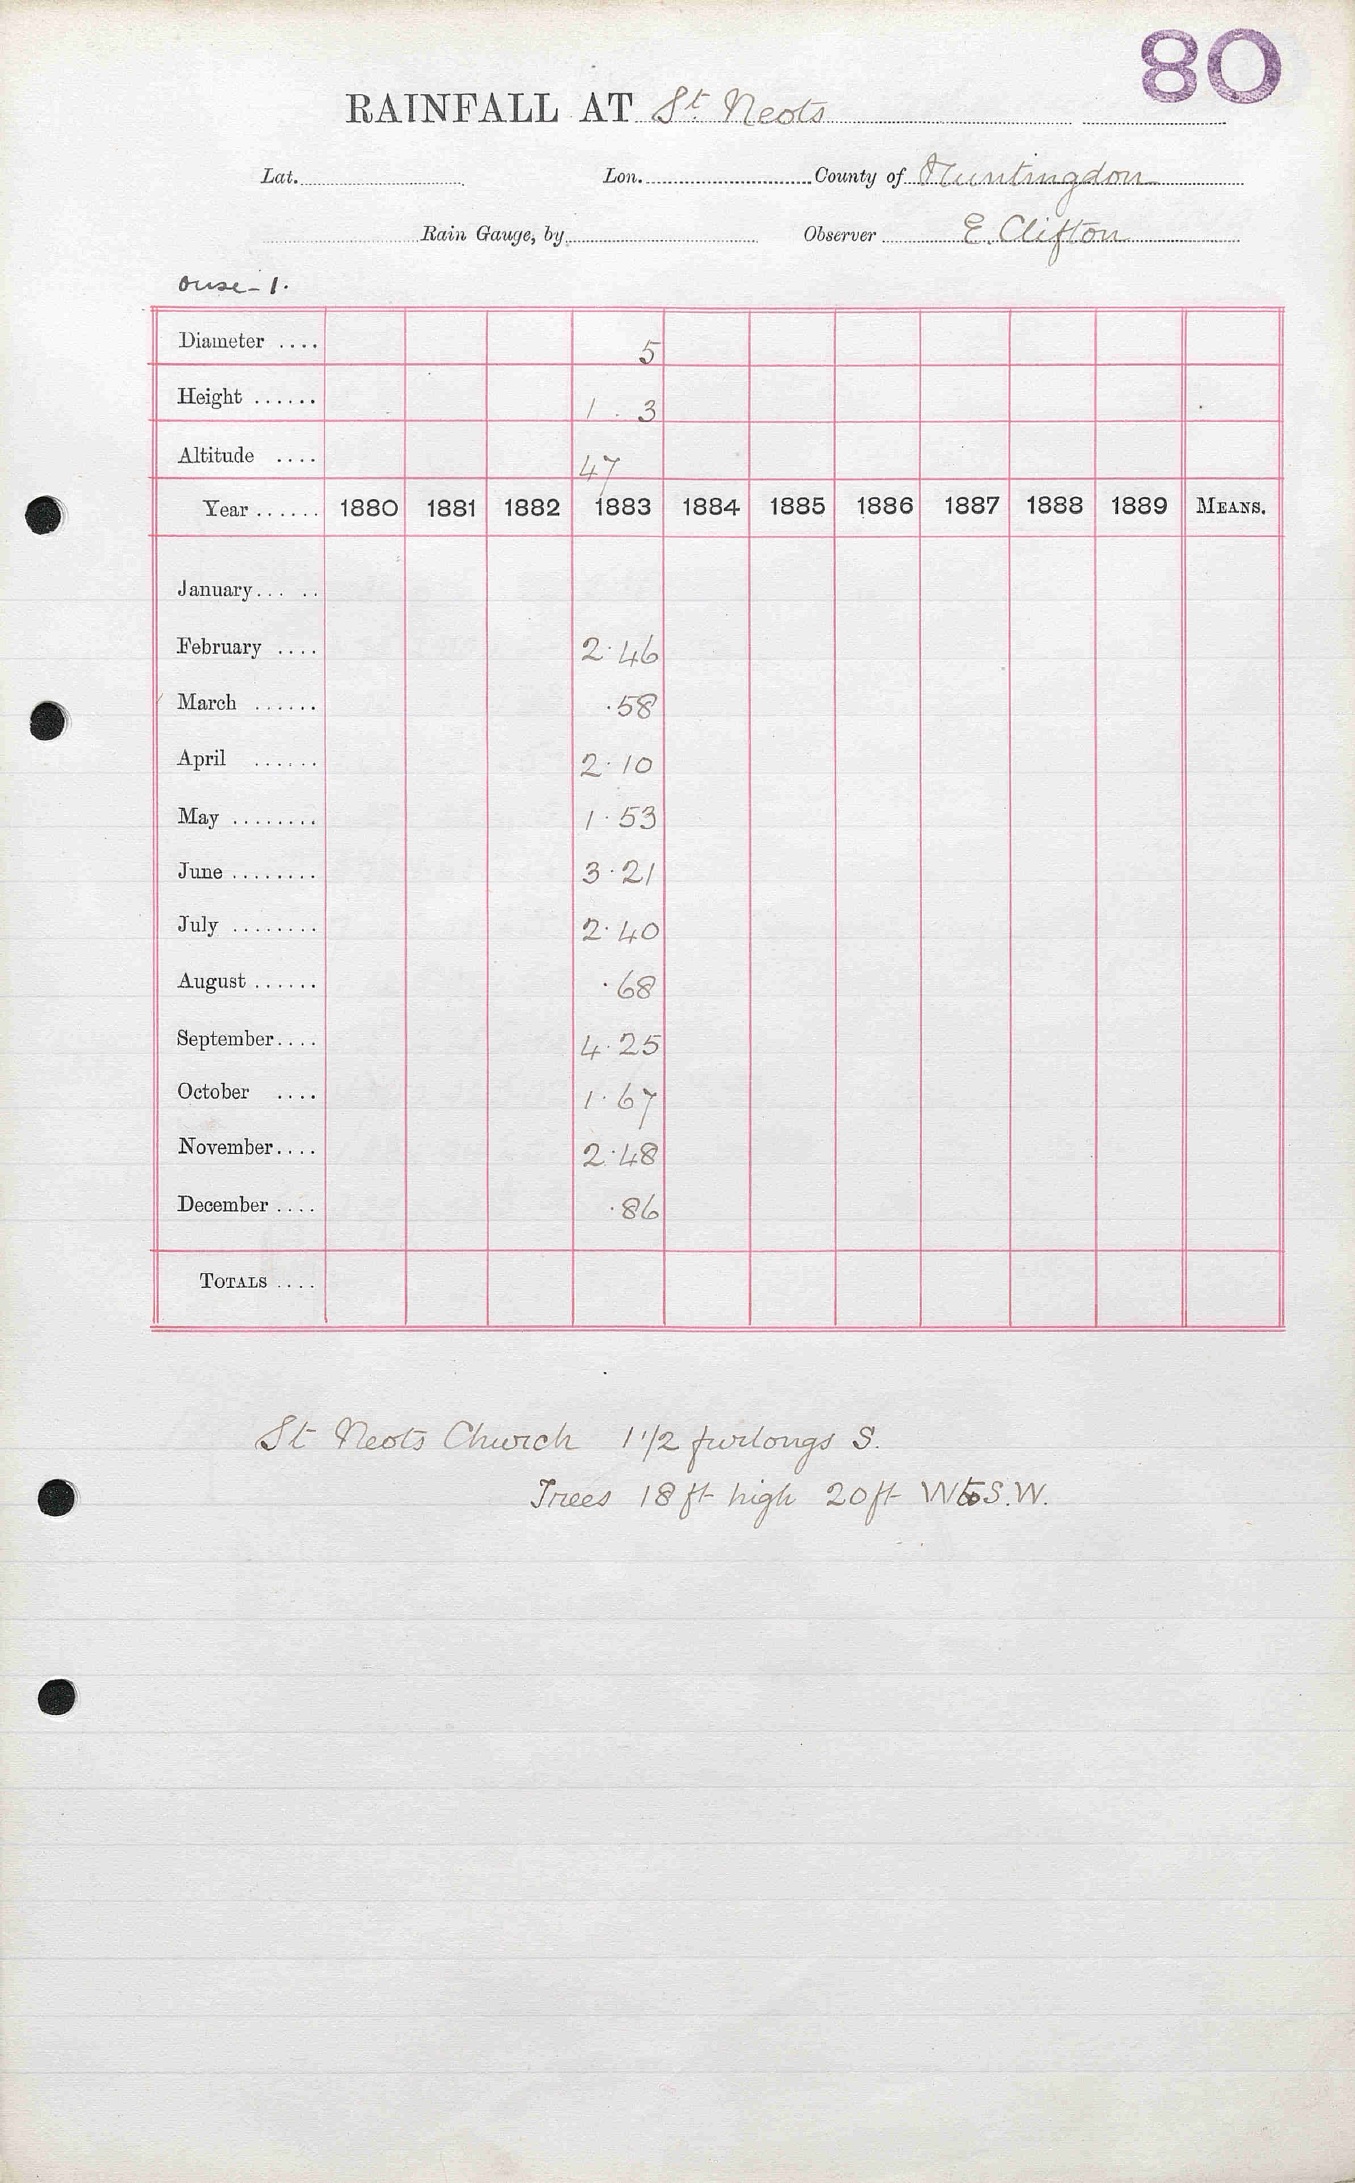 80
RAINFALL AT St. Neots
Lat. Lon. County of Huntingdon
Rain Gauge, by Observer E. Clifton
Ouse - 1.
Diameter .... 5
Height ...... 1 . 3
Altitude .... 47
Year ...... 1880 1881 1882 1883 1884 1885 1886 1887 1888 1889 MEANS.
January... ..
February .... 2.46
March ...... .58
April ...... 2.10
May ........ 1.53
June ........ 3.21
July ........ 2.40
August ...... .68
September.... 4.25
October .... 1.67
November.... 2.48
December .... .86
TOTALS ....
St Neots Church 1 1/2 furlongs S.
Trees 18 ft high 20 ft W to S.W.